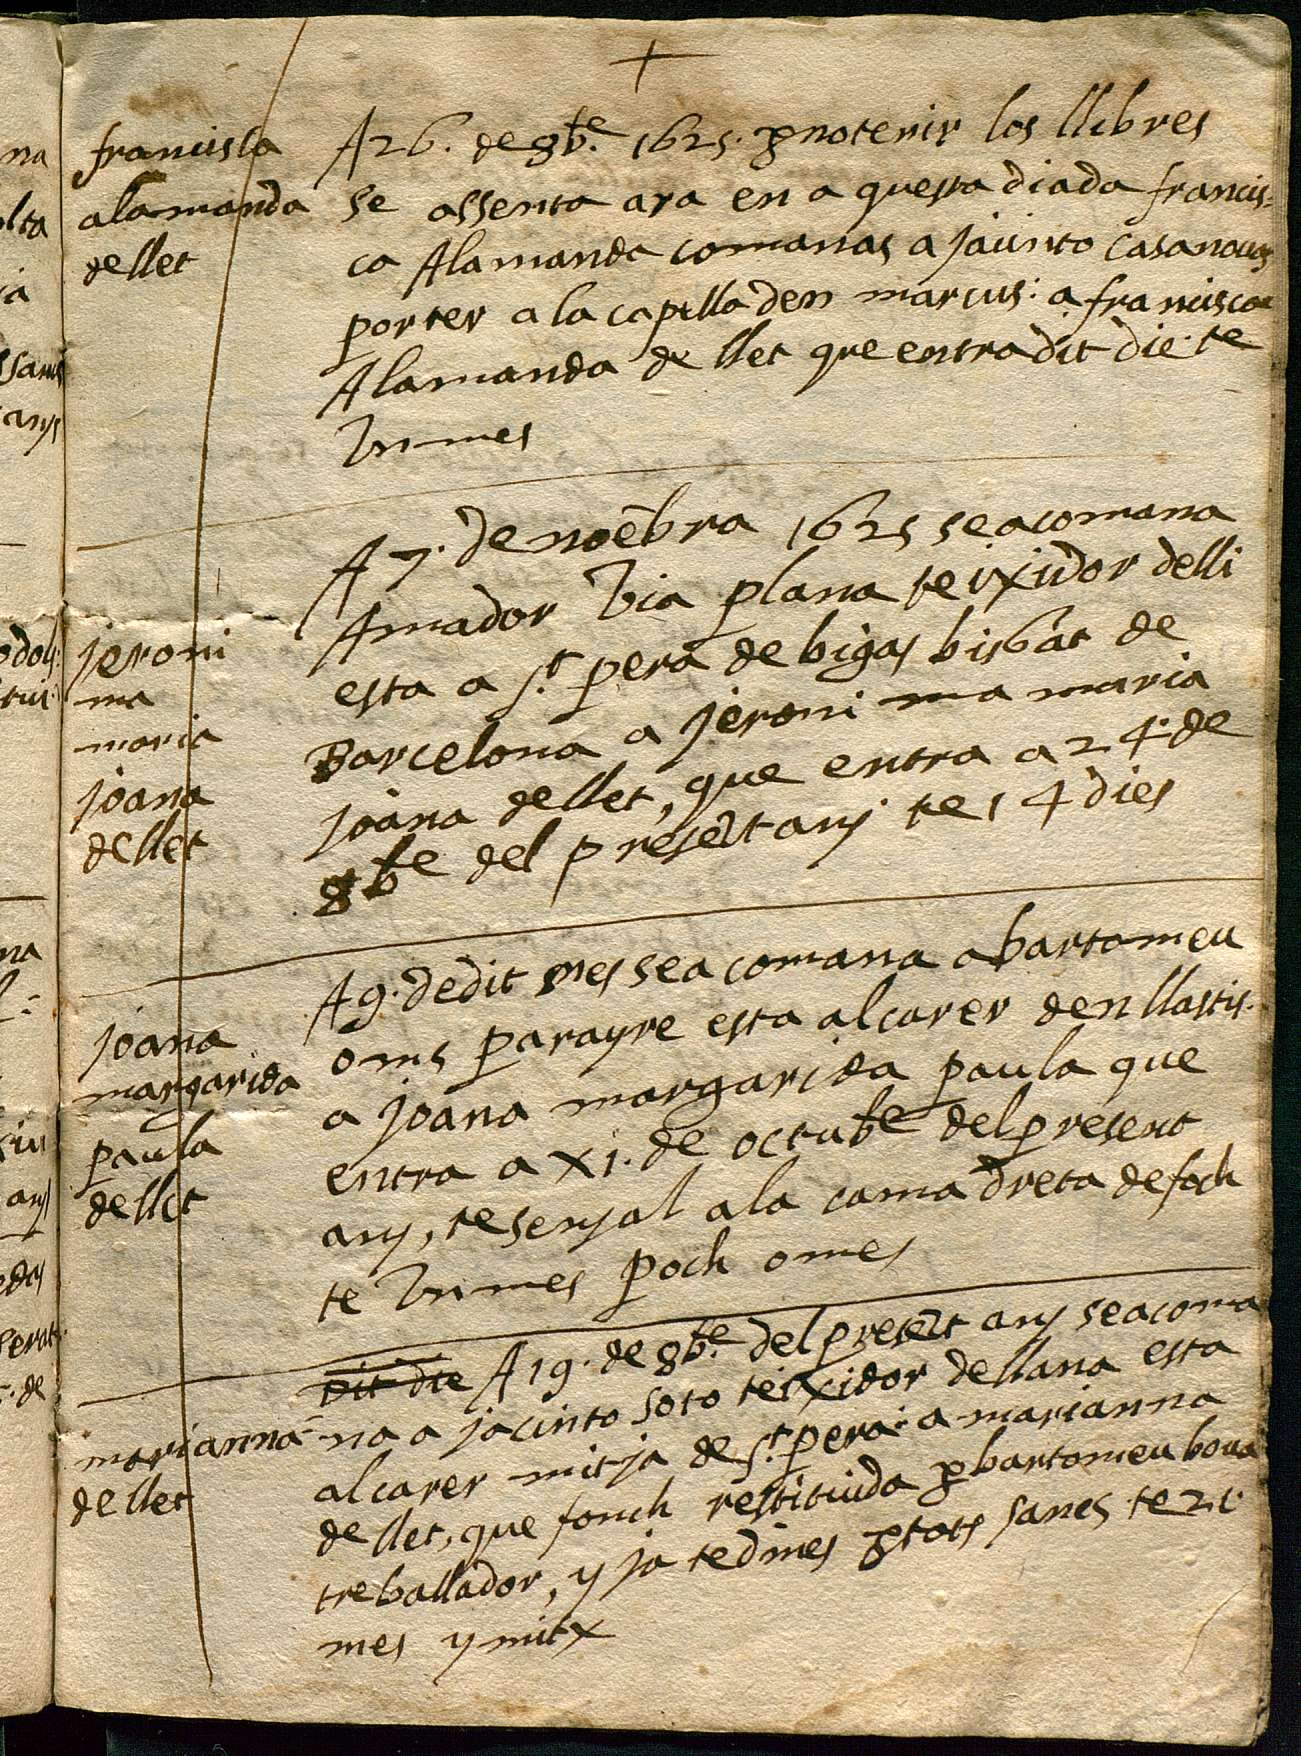 francisca
alamanda
de llet
A 26. de 8bre. 1625. p no tenir los llibres
se assenta ara en a questa diada francis=
ca Alamanda comanas a jaiinto Casanovas
porter a la capella den marcus: a francisca
Alamanda de llet que entra dit die. te
Un mes
jeroni
ma
maria
joana
de llet
A 7. de noēbra 1625 se acomana
Amador Via plana teixidor de lli
esta a st. pera de bigas bisbat de
Barcelona a jeroni ma maria
joana de llet, que entra a 24. de
8bre del preset any te 14 dies
joana
margarida
paula
de llet
A 9. de dit mes se a comana a bartomeu
oms parayre esta al carer den llastis.
a joana margarida paula que
entra a XI. de octubre del present
any, te senyal a la cama dreta de foch
te Un mes poch o mes
marianna
de llet
Dit die A 19. de 8bre. del preset any se acoma
na a jacinto soto teixidor de llana esta
al carer mitja de st. pera: a marianna
de llet, que fonch restituida p bartomeu bova
treballador, y ja te dines p tots sancs te 21
mes y mitx